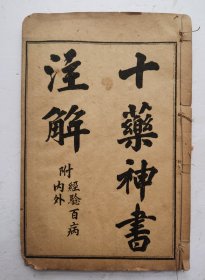 十藥神書
注解
附經驗百病
内外